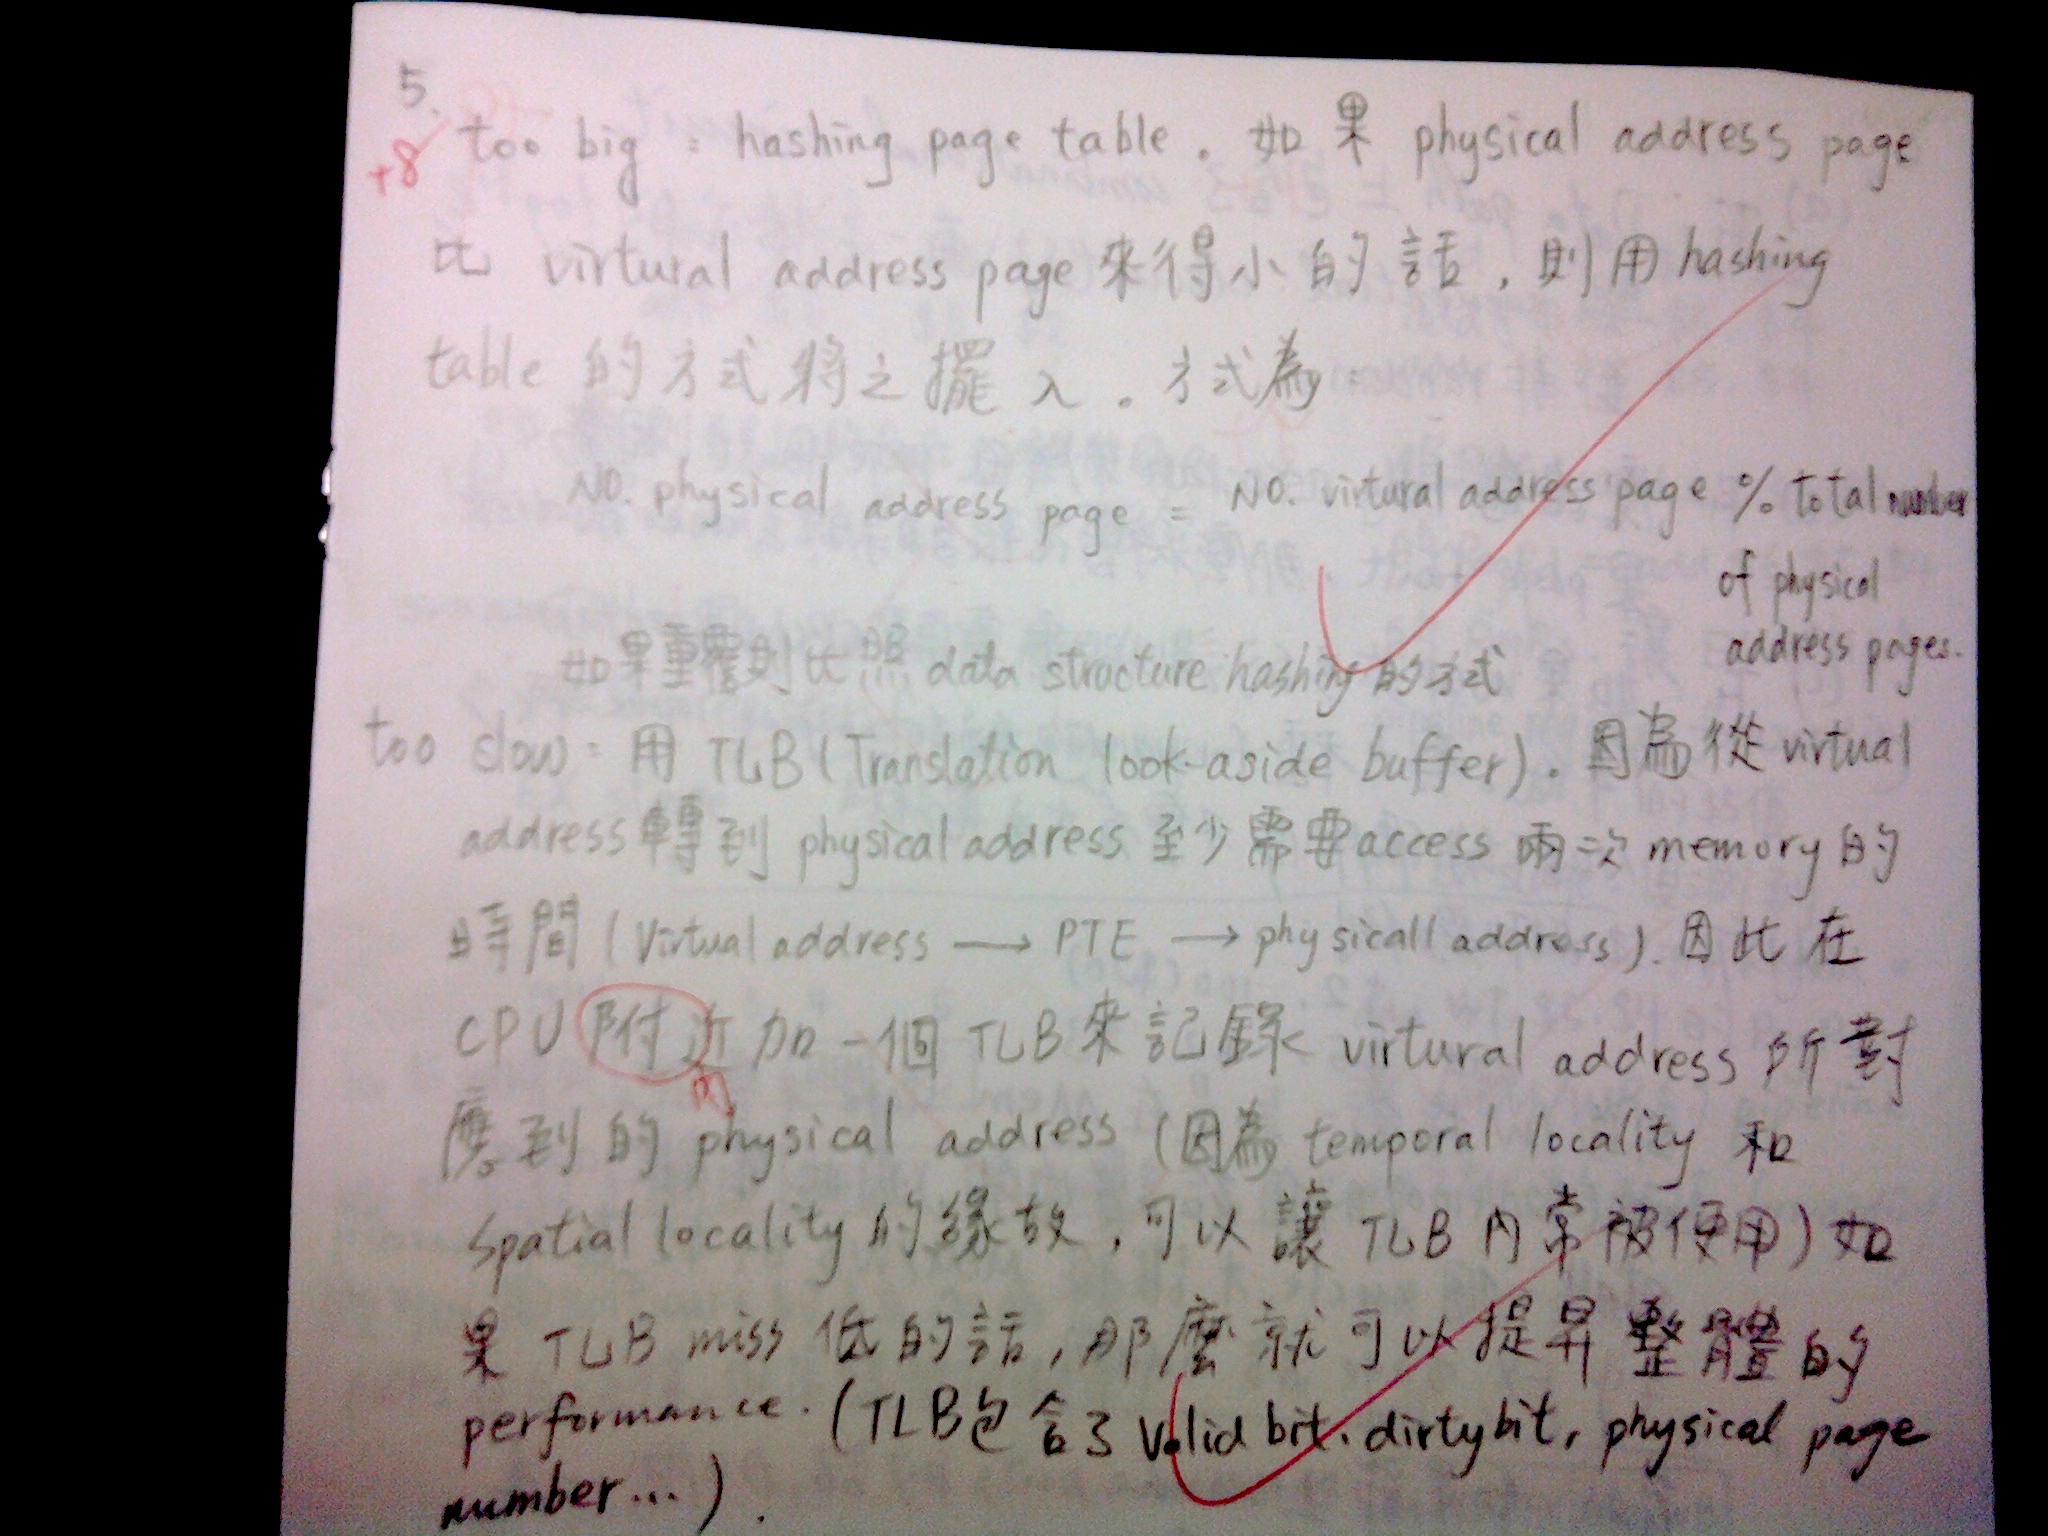 5.
+8
too big : hashing page table. 如果 physical address page
比 virtural address page 來得小的話，則用 hashing
table 的方式將之擺入。方式為：
NO. physical address page = NO. virtural address page % total number
of physical
address pages.
如果重覆則比照 data structure hashing 的方式
too slow : 用 TLB (Translation look-aside buffer). 因為從 virtual
address 轉到 physical address 至少需要 access 兩次 memory 的
時間 (Virtual address → PTE → physicall address). 因此在
CPU 附近加一個 TLB 來記錄 virtural address 所對
應到的 physical address (因為 temporal locality 和
spatial locality 的緣故，可以讓 TLB 內常被使用) 如
果 TLB miss 低的話，那麼就可以提昇整體的
performance. (TLB包含了 valid bit. dirty bit, physical page
number...).